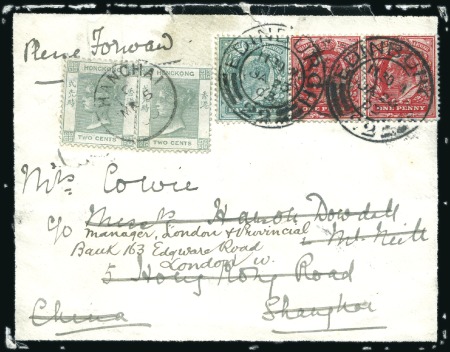 Please Forward
HONGKONG HONGKONG
SHANGHAI
TWO CENTS TWO CENTS
EDINBURGH
EDINBURGH
ONE PENNY
ONE PENNY
Mrs Cowie
c/o Miss Dowdall
Manager, London & Provincial
Bank 163 Edgware Road
London W.
5 Hong Kong Road
China Shanghai